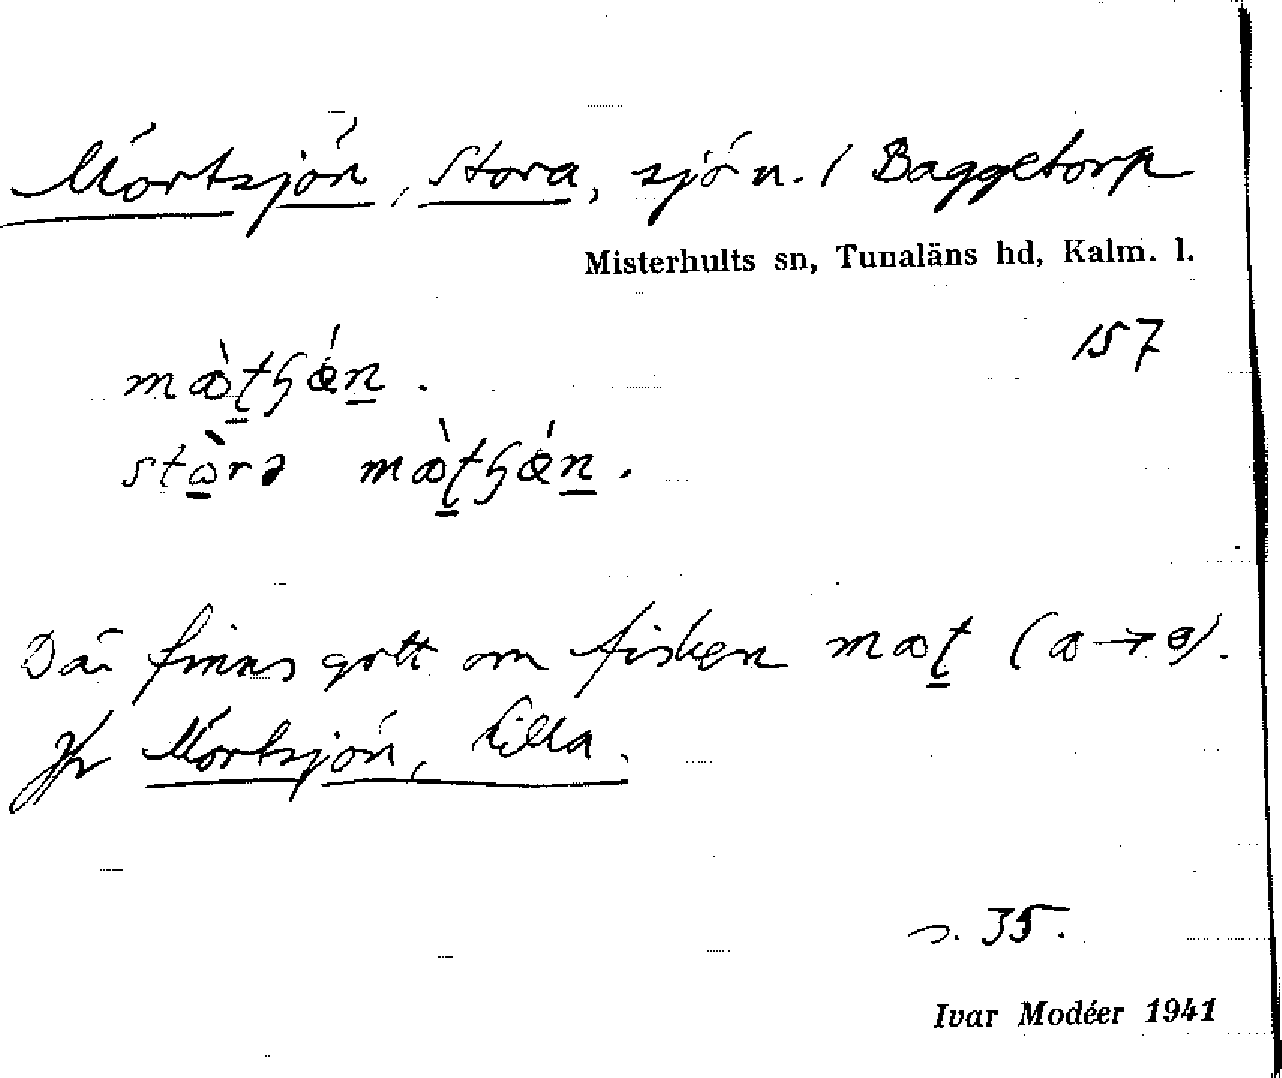 Mörtsjön, Stora, sjö n. / Baggetorp
Misterhults sn, Tunaläns hd, Kalm. l.
157
Där finns gott om fisken
Jfr Mörtsjön, Lilla.
s. 35.
Ivar Modéer 1941